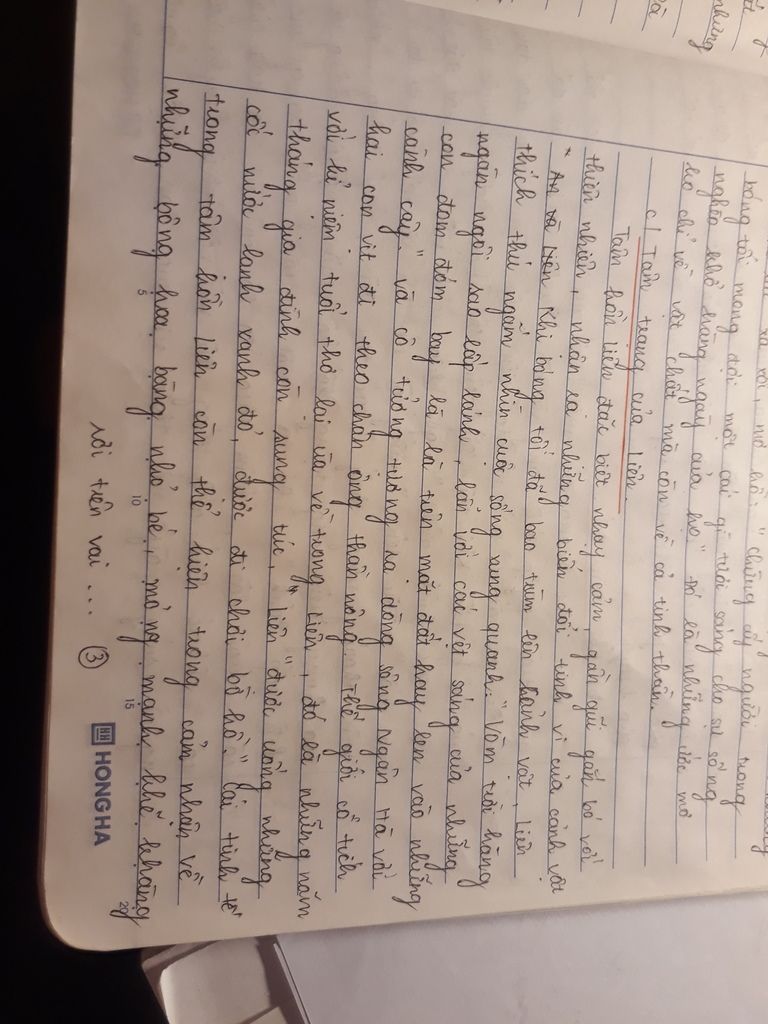 những
bóng tối mong đợi một cái gì tươi sáng cho sự sống
nghèo khổ hàng ngày của họ" đó là những ước mơ
ko chỉ về vật chất mà còn về cả tinh thần.
c/ Tâm trạng của Liên.
Tâm hồn Liên đặc biệt nhạy cảm, gần gũi gắn bó với
thiên nhiên, nhận ra những biến đổi tinh vi của cảnh vật
* An và Liên Khi bóng tối đã bao trùm lên cảnh vật, Liên
thích thú ngắm nhìn cuộc sống xung quanh: "Vòm trời hàng
ngàn ngôi sao lấp lánh, lẫn với các vệt sáng của những
con đom đóm bay là là trên mặt đất hay len vào những
cành cây" và cô tưởng tượng ra dòng sông Ngân Hà với
hai con vịt đi theo chân ông thần nông. Thế giới cổ tích
với kỉ niệm tuổi thơ lại ùa về trong Liên, đó là những năm
tháng gia đình còn sung túc, Liên "được uống những
cốc nước lạnh xanh đỏ, được đi chơi bờ hồ." Cái tinh tế
trong tâm hồn Liên còn thể hiện trong cảm nhận về
những bông hoa bàng nhỏ bé, mỏng manh khẽ khàng
rơi trên vai ... ③
5 10 15 20
HONG HA